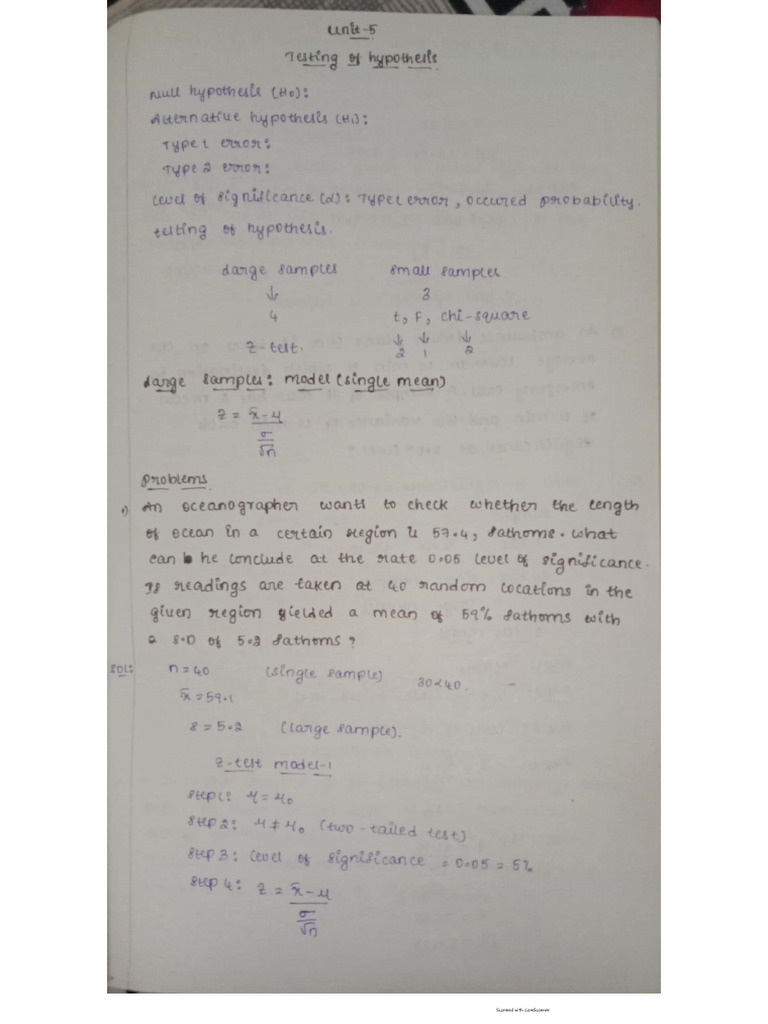 Unit-5
Testing of hypothesis
Null hypothesis (H0):
Alternative hypothesis (H1):
Type 1 error:
Type 2 error:
Level of significance (α): Type 1 error, occured probability.
testing of hypothesis.
Large samples    small samples
↓    3
4    t, F, chi-square
Z-test.    ↓ ↓ ↓
2 1 2
Large samples: model (single mean)
Z = x̄-μ
σ
√n
Problems
1) An oceanographer wants to check whether the length
of ocean in a certain region is 57.4, fathoms. what
can he conclude at the rate 0.05 level of significance.
If readings are taken at 40 random locations in the
given region yielded a mean of 59% fathoms with
a S.D of 5.2 fathoms?
Sol: n=40    (single sample)    30<40.
x̄=59.1
s = 5.2    (large sample).
Z-test model-1
Step 1: μ = μ0
Step 2: μ ≠ μ0 (two-tailed test)
Step 3: level of significance = 0.05 = 5%
Step 4: Z = x̄-μ
σ
√n
Scanned with CamScanner